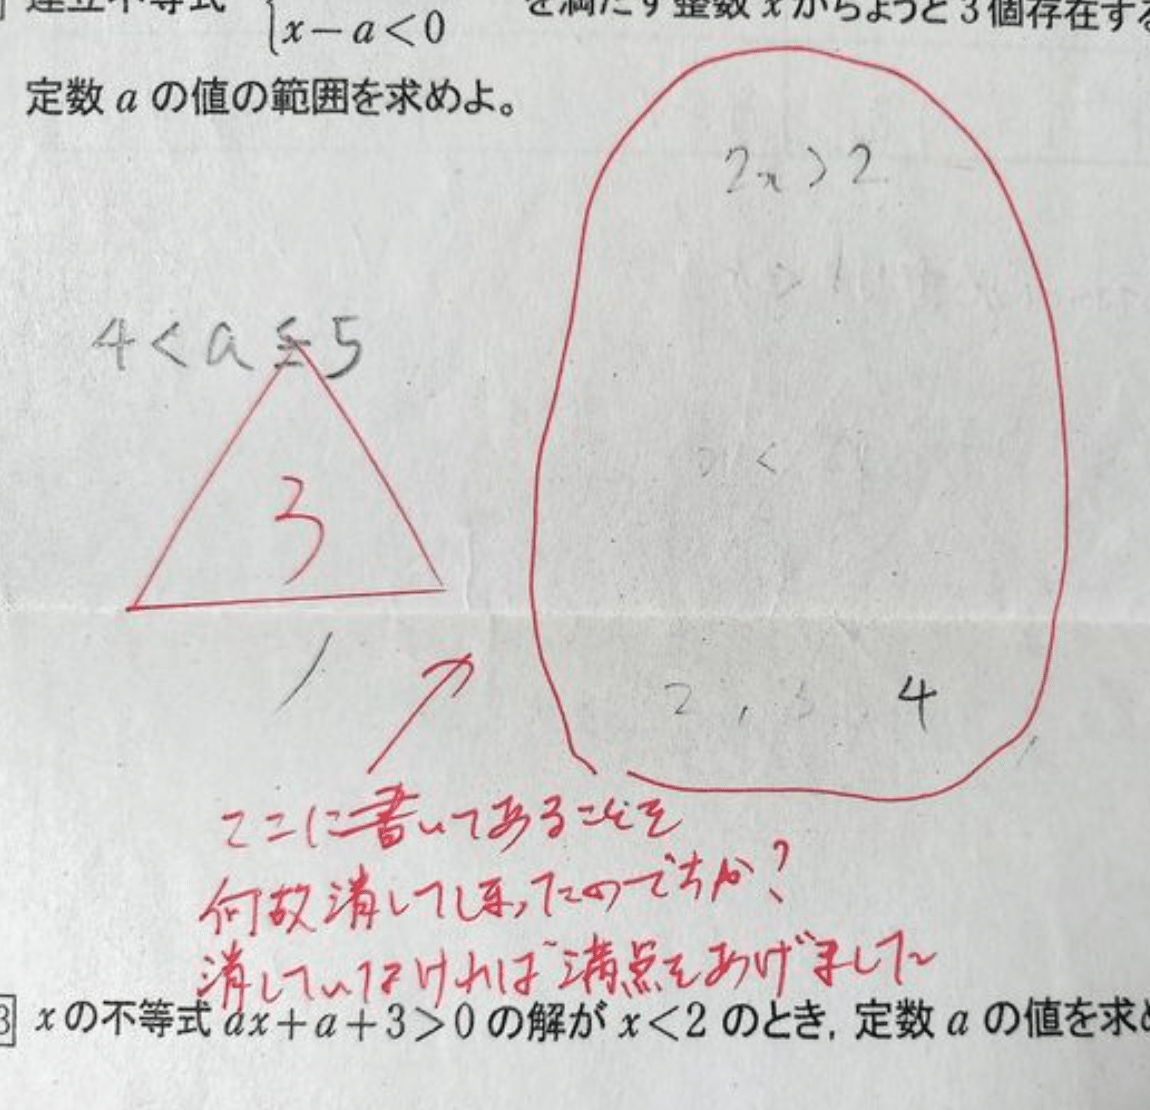 連立不等式 を満たす整数 x がちょうど3個存在する
x-a<0
定数 a の値の範囲を求めよ。
2x>2
x>1
4<a≦5
x<
3
2, 3 4
ここに書いてあることを
何故消してしまったのですか?
消していなければ満点をあげました
3 x の不等式 ax+a+3>0 の解が x<2 のとき, 定数 a の値を求め